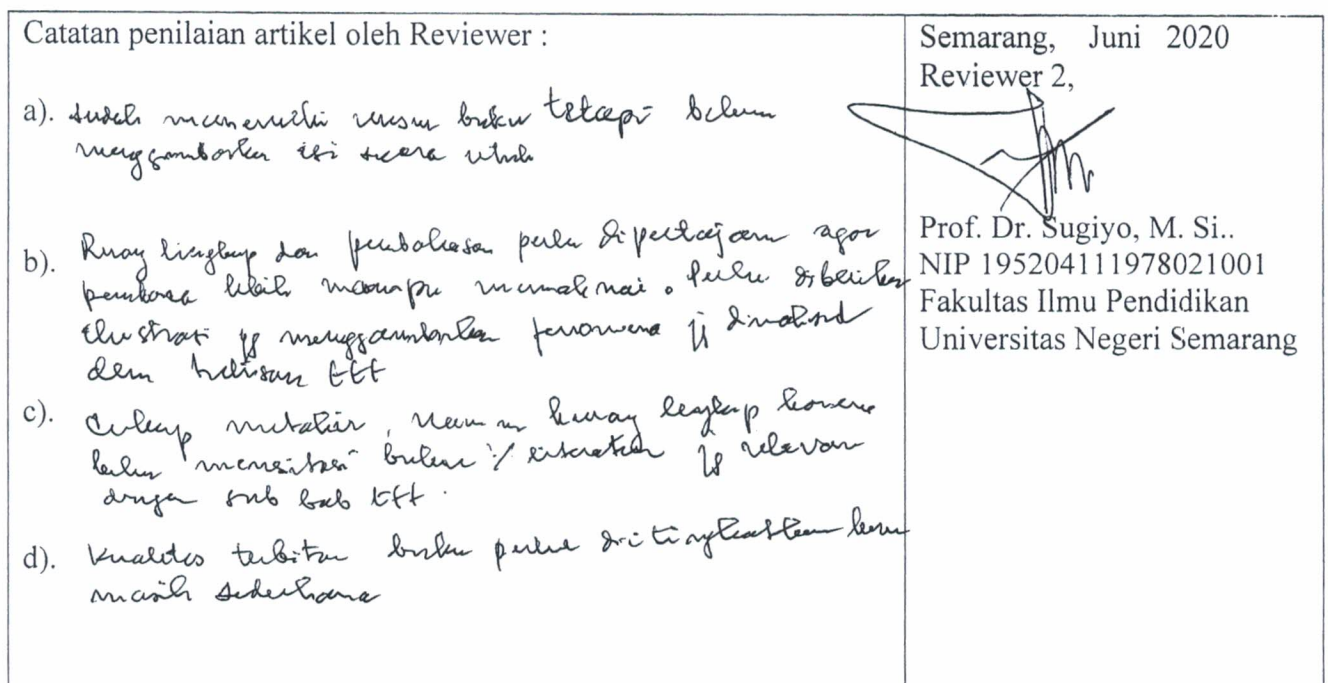 Catatan penilaian artikel oleh Reviewer :
a). Sudah memenuhi unsur buku tetapi belum
menggambarkan isi secara utuh
b). Ruang lingkup dan pembahasan perlu dipertajam agar
pembaca lebih mampu memaknai. Perlu diberikan
ilustrasi yg menggambarkan fenomena yg dimaksud
dlm tulisan tst
c). Cukup mutakhir, namun kurang lengkap karena
belum mensitasi buku literatur yg relevan
dengan sub bab tst.
d). Kualitas terbitan buku perlu ditingkatkan krn
masih sederhana
Semarang, Juni 2020
Reviewer 2,
Prof. Dr. Sugiyo, M. Si..
NIP 195204111978021001
Fakultas Ilmu Pendidikan
Universitas Negeri Semarang